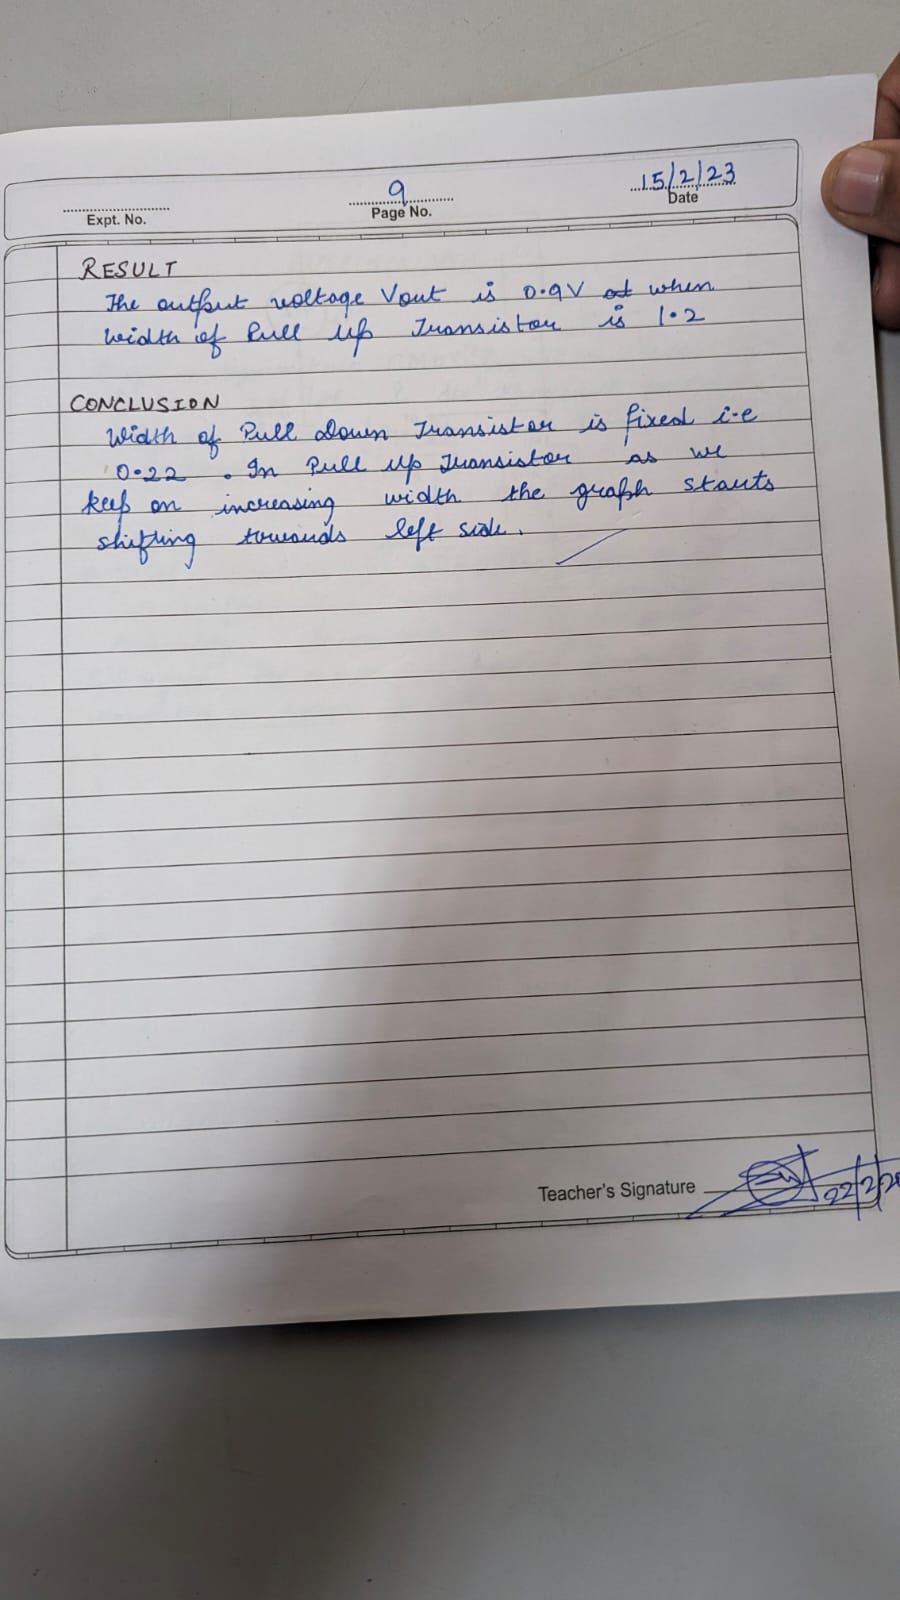 9
15/2/23
Expt. No.
Page No.
Date
RESULT
The output voltage Vout is 0.9V at when
width of Pull up Transistor is 1.2
CONCLUSION
Width of Pull Down Transistor is fixed i.e
0.22 . In Pull up Transistor as we
keep on increasing width the graph starts
shifting towards left side.
Teacher's Signature
22/2/20